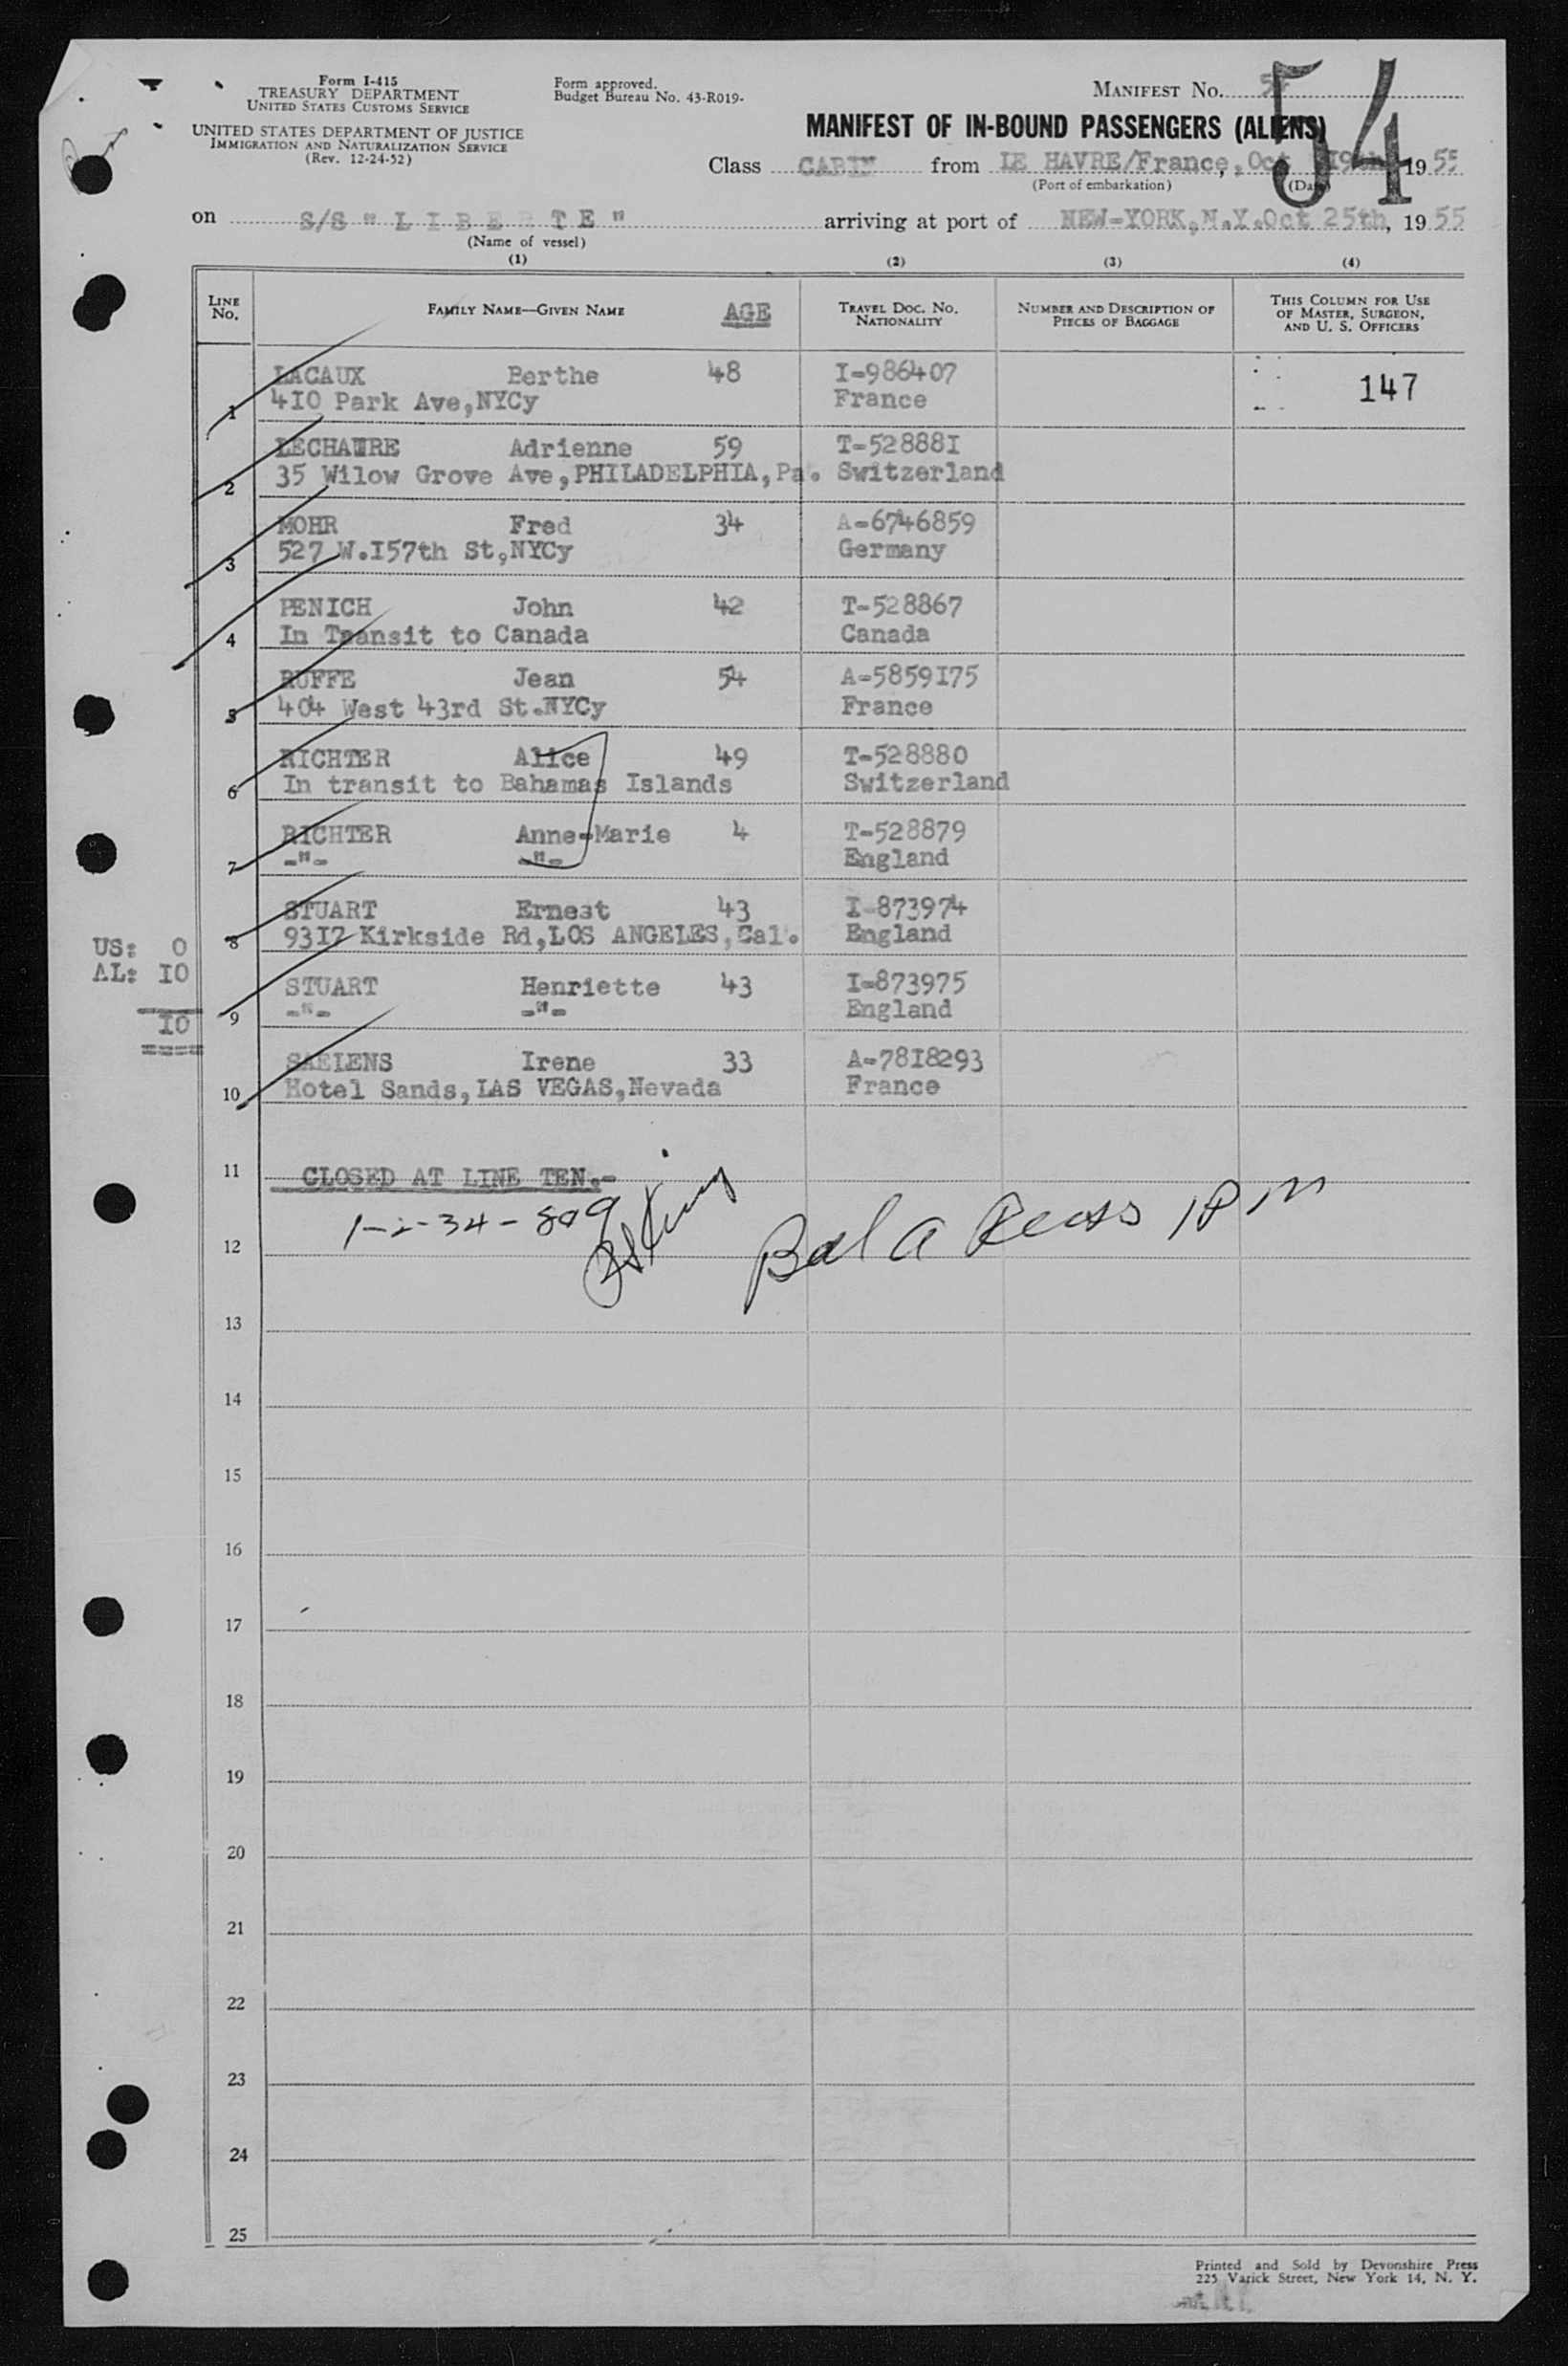 Form I-415
TREASURY DEPARTMENT
UNITED STATES CUSTOMS SERVICE
UNITED STATES DEPARTMENT OF JUSTICE
IMMIGRATION AND NATURALIZATION SERVICE
(Rev. 12-24-52)
Form approved.
Budget Bureau No. 43-R019-
MANIFEST NO. 54
54
MANIFEST OF IN-BOUND PASSENGERS (ALIENS)
Class CABIN from LE HAVRE/France, Oct 19th 19 55
(Port of embarkation) (Date)
on S/S " L I B E R T E " arriving at port of NEW-YORK,N.Y.Oct 25th, 19 55
(Name of vessel)
(1) (2) (3) (4)
LINE NO. FAMILY NAME—GIVEN NAME AGE TRAVEL DOC. NO. NATIONALITY NUMBER AND DESCRIPTION OF PIECES OF BAGGAGE THIS COLUMN FOR USE OF MASTER, SURGEON, AND U. S. OFFICERS
1 LACAUX Berthe 48 I-986407 147
410 Park Ave,NYCy France
2 Adrienne 59 T-528881
35 Wilow Grove Ave,PHILADELPHIA,Pa. Switzerland
3 MOHR Fred 34 A-6746859
527 W.I57th St,NYCy Germany
4 PENICH John 42 T-528867
In Transit to Canada Canada
5 RUFFE Jean 54 A-5859I75
404 West 43rd St.NYCy France
6 RICHTER Alice 49 T-528880
In transit to Bahamas Islands Switzerland
7 RICHTER Anne-Marie 4 T-528879
-"- -"- England
8 STUART Ernest 43 I-873974
93I7 Kirkside Rd,LOS ANGELES,Cal. England
9 STUART Henriette 43 I-873975
-"- -"- England
10 SAELENS Irene 33 A-78I8293
Hotel Sands,LAS VEGAS,Nevada France
US: 0
AL: I0
I0
11 CLOSED AT LINE TEN.-
1-2-34-809
12 Bal A
13
14
15
16
17
18
19
20
21
22
23
24
25
Printed and Sold by Devonshire Press
225 Varick Street, New York 14, N. Y.